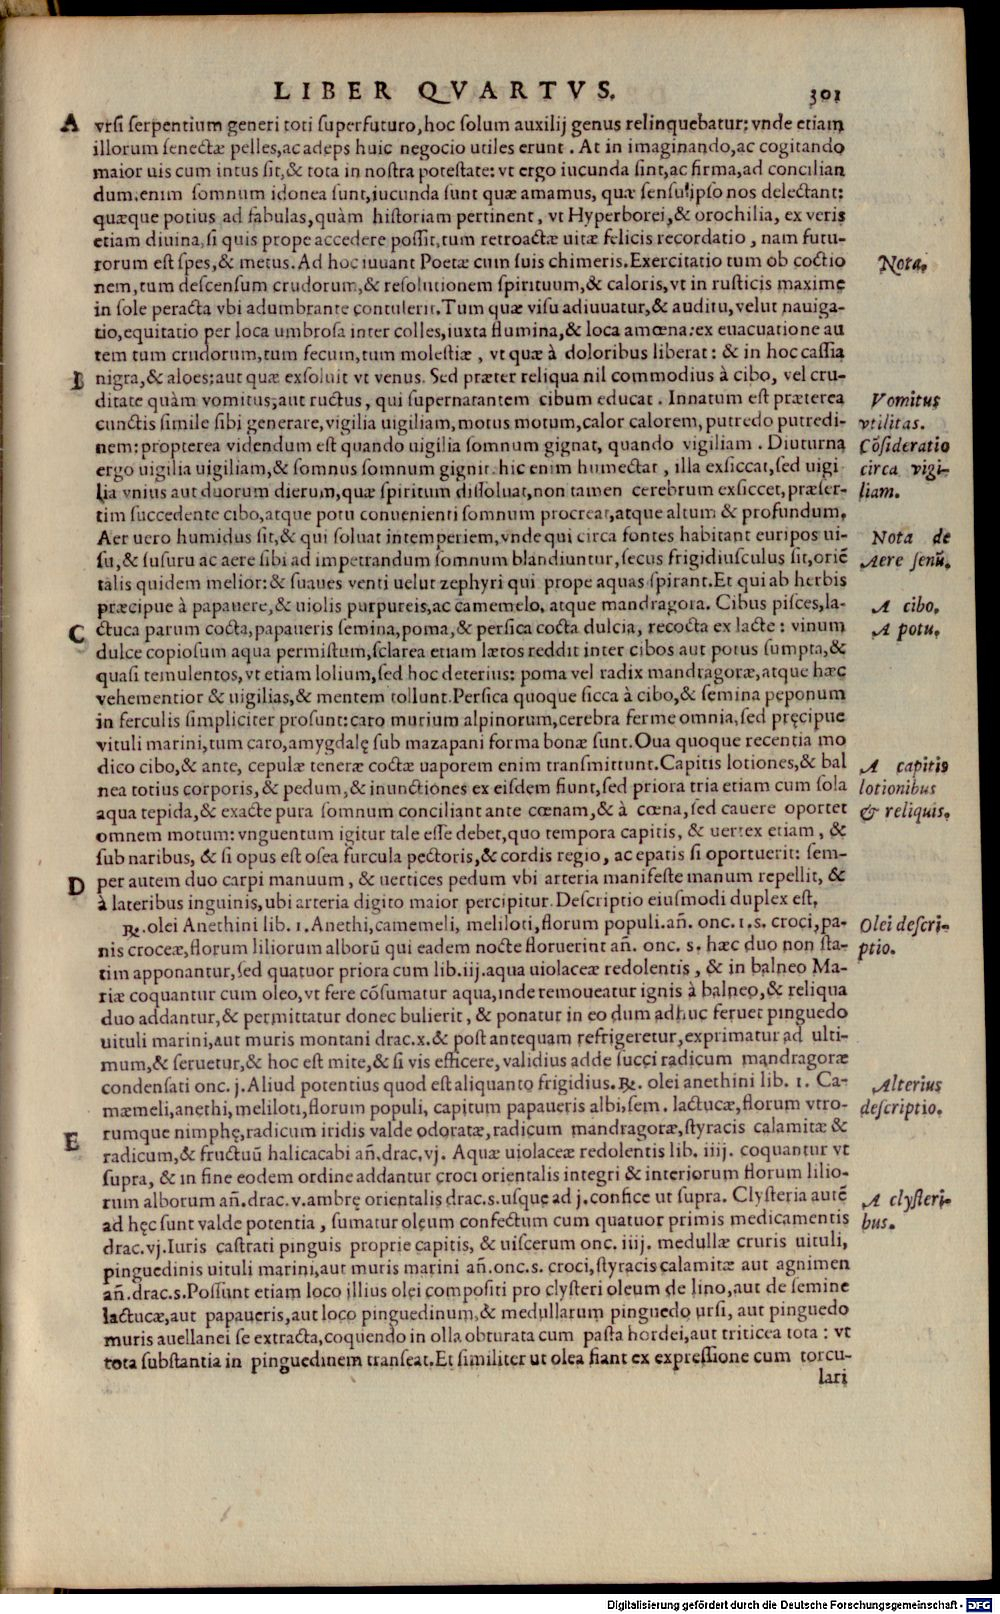 LIBER QVARTVS. 301
A vrsi serpentium generi toti superfuturo, hoc solum auxilij genus relinquebatur: vnde etiam
illorum senectæ pelles, ac adeps huic negocio utiles erunt. At in imaginando, ac cogitando
maior uis cum intus sit, & tota in nostra potestate: vt ergo iucunda sint, ac firma, ad concilian
dum. enim somnum idonea sunt, iucunda sunt quæ amamus, quæ sensu ipso nos delectant:
quæque potius ad fabulas, quàm historiam pertinent, vt Hyperborei, & orochilia, ex veris
etiam diuina, si quis prope accedere possit, tum retroactæ uitæ felicis recordatio, nam futu-
rorum est spes, & metus. Ad hoc iuuant Poetæ cum suis chimeris. Exercitatio tum ob coctio
Nota.
nem, tum descensum crudorum, & resolutionem spirituum, & caloris, vt in rusticis maxime
in sole peracta vbi adumbrante contulerit. Tum quæ visu adiuuatur, & auditu, velut nauiga-
tio, equitatio per loca umbrosa inter colles, iuxta flumina, & loca amœna: ex euacuatione au
tem tum crudorum, tum fecum, tum molestiæ, vt quæ à doloribus liberat: & in hoc cassia
B nigra, & aloes; aut quæ exsoluit vt venus. Sed præter reliqua nil commodius à cibo, vel cru-
ditate quàm vomitus; aut ructus, qui supernatantem cibum educat. Innatum est præterea
Vomitus
cunctis simile sibi generare, vigilia uigiliam, motus motum, calor calorem, putredo putredi-
vtilitas.
nem: propterea videndum est quando uigilia somnum gignat, quando vigiliam. Diuturna
Cõsideratio
ergo uigilia uigiliam, & somnus somnum gignit. hic enim humectat, illa exsiccat, sed uigi
circa vigi-
lia vnius aut duorum dierum, quæ spiritum dissoluat, non tamen cerebrum exsiccet, præser-
liam.
tim succedente cibo, atque potu conuenienti somnum procreat, atque altum & profundum.
Aer uero humidus sit, & qui soluat intemperiem, vnde qui circa fontes habitant euripos ui-
Nota de
su, & susuru ac aere sibi ad impetrandum somnum blandiuntur, secus frigidiusculus sit, oriẽ
Aere senũ.
talis quidem melior: & suaues venti uelut zephyri qui prope aquas spirant. Et qui ab herbis
præcipue à papauere, & uiolis purpureis, ac camemelo, atque mandragora. Cibus pisces, la-
A cibo.
C ctuca parum cocta, papaueris semina, poma, & persica cocta dulcia, recocta ex lacte: vinum
A potu.
dulce copiosum aqua permistum, sclarea etiam lætos reddit inter cibos aut potus sumpta, &
quasi temulentos, vt etiam lolium, sed hoc deterius: poma vel radix mandragoræ, atque hæc
vehementior & uigilias, & mentem tollunt. Persica quoque sicca à cibo, & semina peponum
in ferculis simpliciter prosunt: caro murium alpinorum, cerebra ferme omnia, sed pręcipue
vituli marini, tum caro, amygdalę sub mazapani forma bonæ sunt. Oua quoque recentia mo
dico cibo, & ante, cepulæ teneræ coctæ uaporem enim transmittunt. Capitis lotiones, & bal
A capitis
nea totius corporis, & pedum, & inunctiones ex eisdem fiunt, sed priora tria etiam cum sola
lotionibus
aqua tepida, & exacte pura somnum conciliant ante cœnam, & à cœna, sed cauere oportet
& reliquis.
omnem motum: vnguentum igitur tale esse debet, quo tempora capitis, & uertex etiam, &
sub naribus, & si opus est osea furcula pectoris, & cordis regio, ac epatis si oportuerit: sem-
D per autem duo carpi manuum, & uertices pedum vbi arteria manifeste manum repellit, &
à lateribus inguinis, ubi arteria digito maior percipitur. Descriptio eiusmodi duplex est.
℞. olei Anethini lib. 1. Anethi, camemeli, meliloti, florum populi. añ. onc. 1. s. croci, pa-
Olei descri-
nis croceæ, florum liliorum alborũ qui eadem nocte floruerint añ. onc. s. hæc duo non sta-
ptio.
tim apponantur, sed quatuor priora cum lib. iij. aqua uiolaceæ redolentis, & in balneo Ma-
riæ coquantur cum oleo, vt fere cõsumatur aqua, inde remoueatur ignis à balneo, & reliqua
duo addantur, & permittatur donec bulierit, & ponatur in eo dum adhuc feruet pinguedo
uituli marini, aut muris montani drac. x. & post antequam refrigeretur, exprimatur ad ulti-
mum, & seruetur, & hoc est mite, & si vis efficere, validius adde succi radicum mandragoræ
condensati onc. j. Aliud potentius quod est aliquanto frigidius. ℞. olei anethini lib. 1. Ca-
Alterius
mæmeli, anethi, meliloti, florum populi, capitum papaueris albi, sem. lactucæ, florum vtro-
descriptio.
E rumque nimphę, radicum iridis valde odoratæ, radicum mandragoræ, styracis calamitæ &
radicum, & fructuũ halicacabi añ. drac. vj. Aquæ uiolaceæ redolentis lib. iiij. coquantur vt
supra, & in fine eodem ordine addantur croci orientalis integri & interiorum florum lilio-
rum alborum añ. drac. v. ambrę orientalis drac. s. usque ad j. confice ut supra. Clysteria autẽ
A clysteri-
ad hęc sunt valde potentia, sumatur oleum confectum cum quatuor primis medicamentis
bus.
drac. vj. Iuris castrati pinguis proprie capitis, & uiscerum onc. iiij. medullæ cruris uituli,
pinguedinis uituli marini, aut muris marini añ. onc. s. croci, styracis calamitæ aut agnimen
añ. drac. s. Possunt etiam loco illius olei compositi pro clysteri oleum de lino, aut de semine
lactucæ, aut papaueris, aut loco pinguedinum, & medullarum pinguedo ursi, aut pinguedo
muris auellanei se extracta, coquendo in olla obturata cum pasta hordei, aut triticea tota: vt
tota substantia in pinguedinem transeat. Et similiter ut olea fiant ex expressione cum torcu-
lari
Digitalisierung gefördert durch die Deutsche Forschungsgemeinschaft - DFG